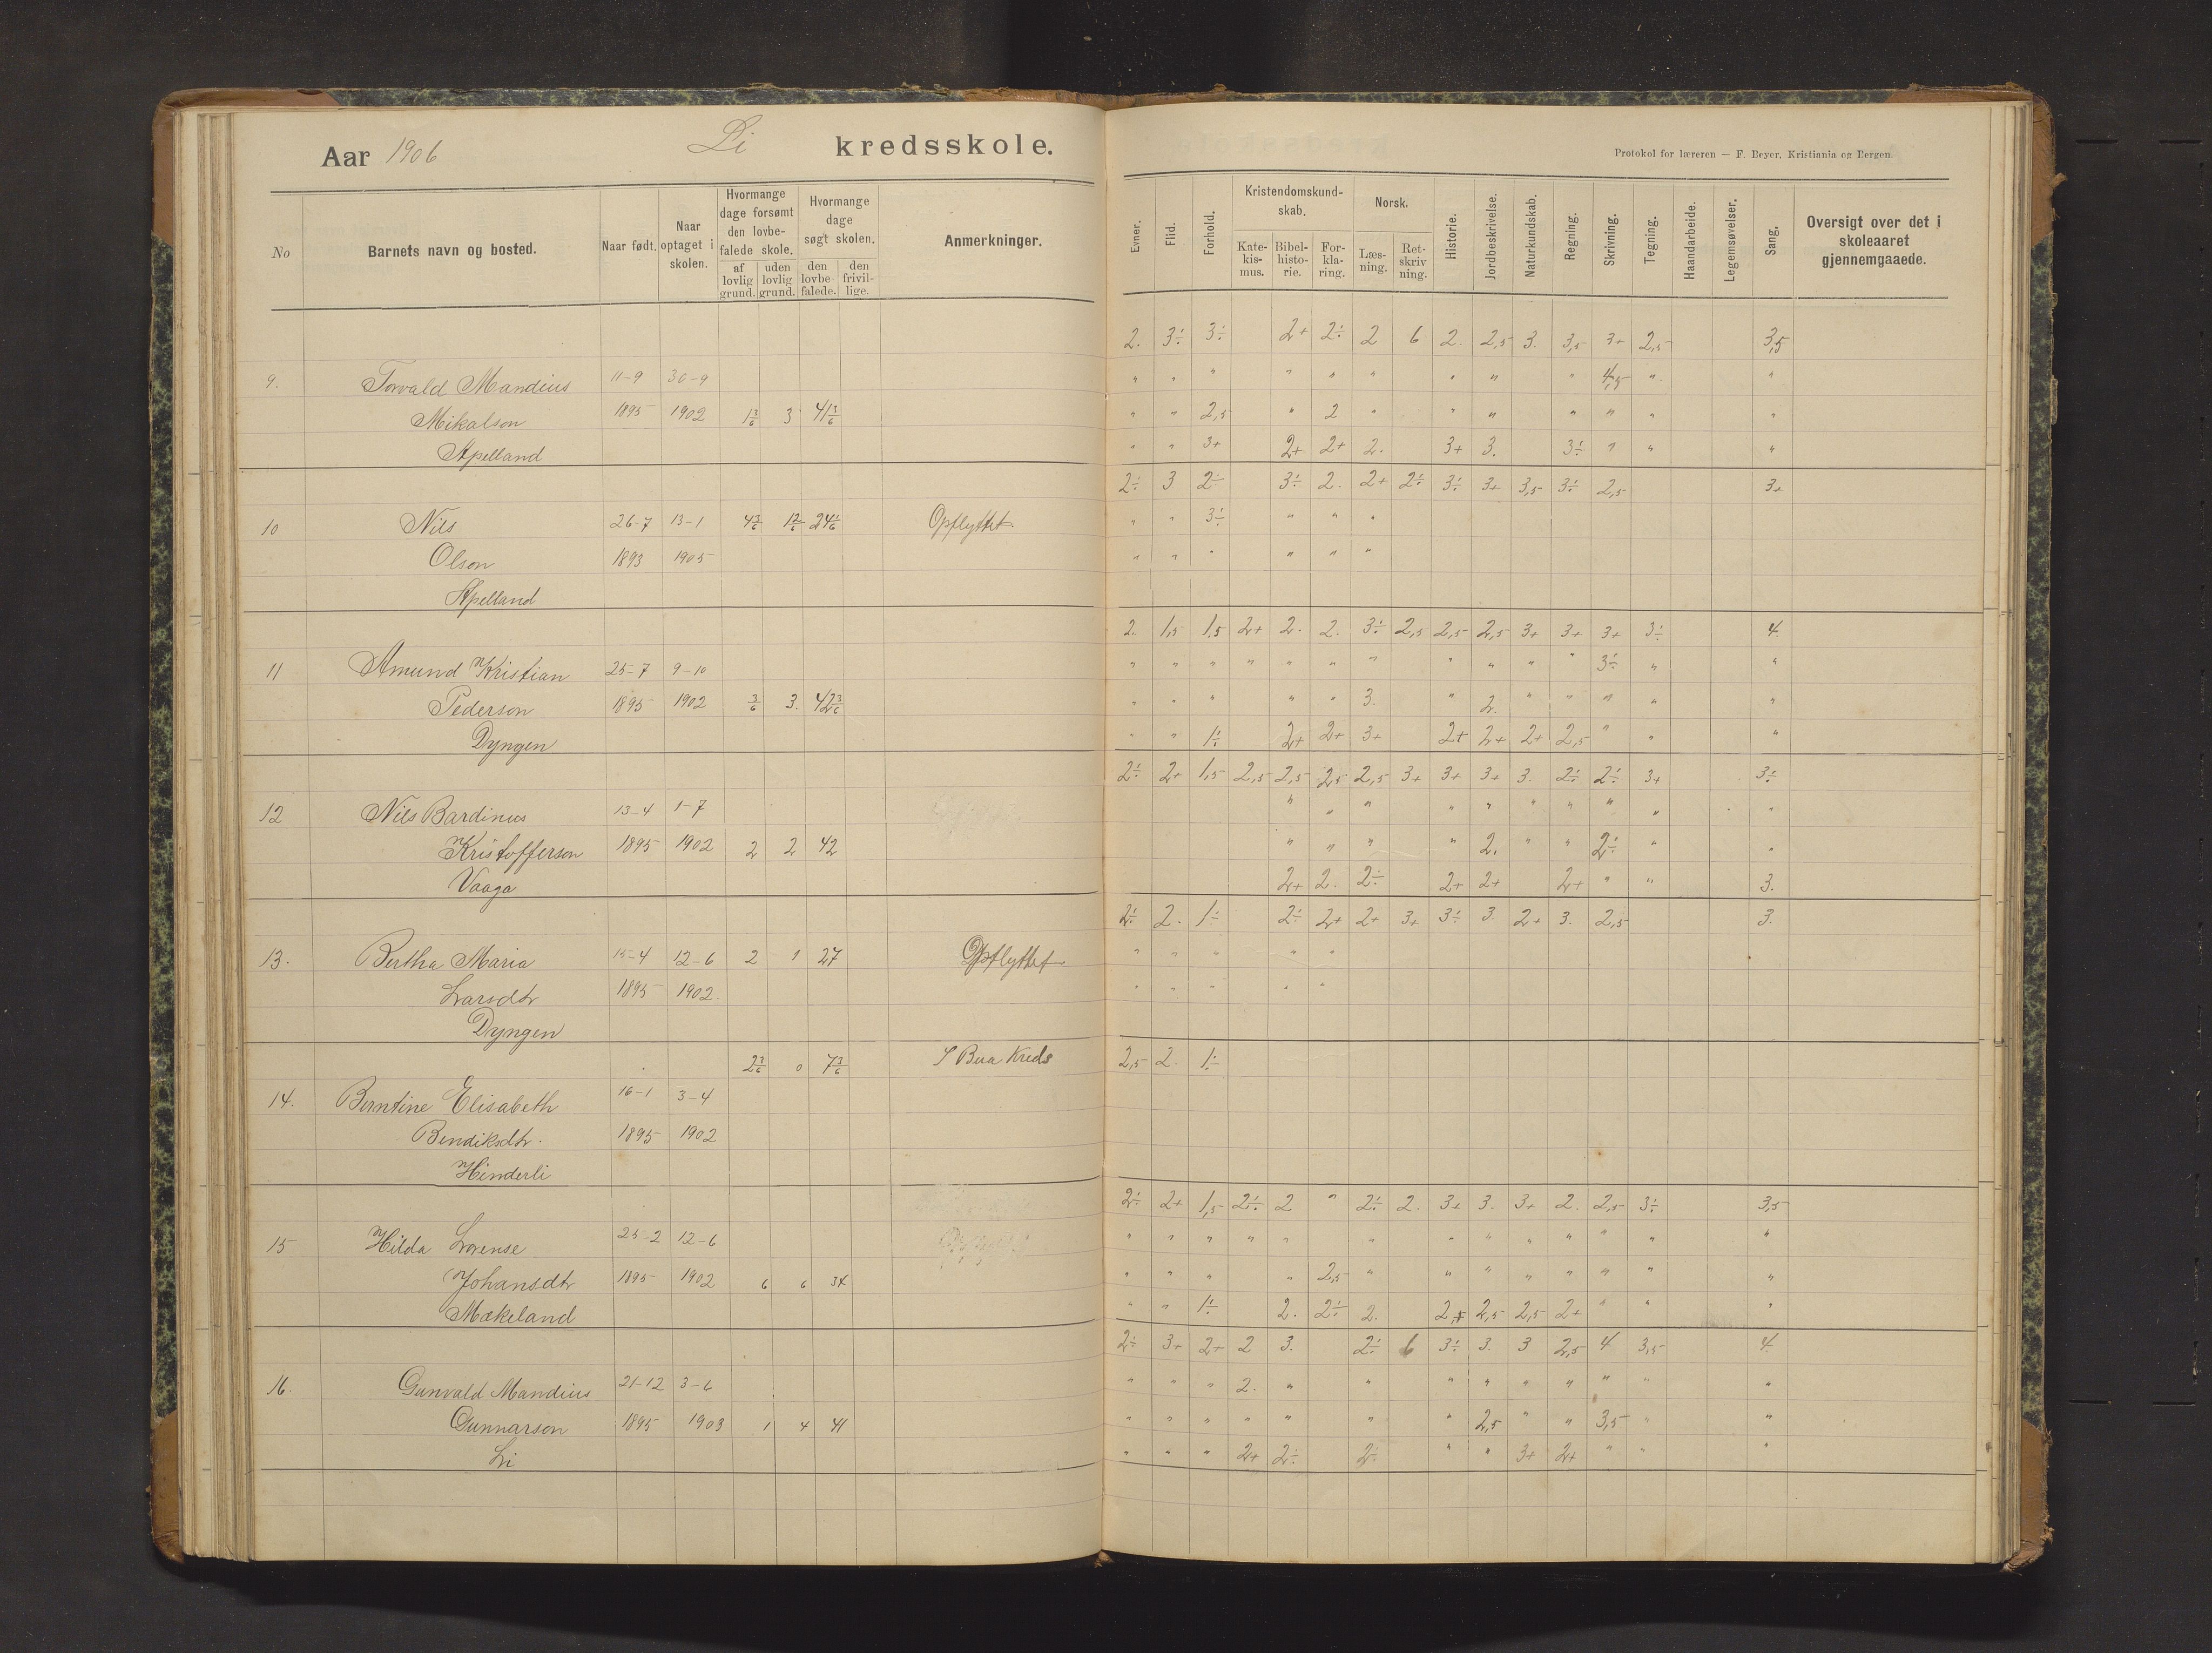 Aar 1906 Li kredsskole.
Protokol for læreren — F. Beyer, Kristiania og Bergen.
No Barnets navn og bosted. Naar født. Naar optaget i skolen. Hvormange dage forsømt den lovbefalede skole. af lovlig grund. uden lovlig grund. Hvormange dage søgt skolen. den lovbefalede. den frivillige. Anmerkninger.
Evner. Flid. Forhold. Kristendomskundskab. Katekismus. Bibelhistorie. Forklaring. Norsk. Læsning. Retskrivning. Historie. Jordbeskrivelse. Naturkundskab. Regning. Skrivning. Tegning. Haandarbeide. Legemsøvelser. Sang. Oversigt over det i skoleaaret gjennemgaaede.
2. 3÷ 3÷ 2+ 2÷ 2 6 2. 2,5 3. 3,5 3+ 2,5 3,5
9. Torvald Mandius 11-9 30-9 " " " " " " " " " 4,5 " "
Mikalson 1895 1902 1 3/6 3 41 3/6 " " 2,5 " 2 " " " " " " "
Apelland " " 3+ 2+ 2+ 2. 3+ 3. 3÷ " " "
2÷ 3 2÷ 3÷ 2. 2+ 2÷ 3÷ 3+ 3,5 3÷ 2,5 3+
10 Nils 26-7 13-1 Opflyttet. " " 3÷ " " "
Olson 1893 1905 " " " " " "
Apelland
2. 1,5 1,5 2+ 2. 2. 3÷ 2,5 2,5 2,5 3+ 3+ 3+ 3÷ 4
11 Amund Kristian 25-7 9-10 " " " " " " " " " " " 3÷ " "
Pederson 1895 1902 3/6 3. 42 3/6 " " " " " 3. " 2. " " " " "
Dyngen " " 1÷ 2+ 2+ 3+ 2+ 2+ 2+ 2,5 " " "
2÷ 2+ 1,5 2,5 2,5 2,5 2,5 3+ 3+ 3+ 3. 2÷ 2÷ 3+ 3÷
12 Nils Bardinus 13-4 1-7 " " " " " " " " " "
Kristofferson 1895 1902 2 2 42 " " " " 2. " " 2÷ " "
Vaaga 2+ 2. 2÷ 2+ 2+ 2+ " " 3.
2÷ 2. 1÷ 2÷ 2+ 2+ 3+ 3÷ 3. 2+ 3. 2,5 3.
13. Bertha Maria 15-4 12-6 2 1 27 Opflyttet " " " " "
Larsdtr 1895 1902. " " " " "
Dyngen
2 3/6 0 7 3/6 I Bua Kreds 2,5 2. 1÷
14. Berntine Elisabeth 16-1 3-4
Bendiksdtr. 1895 1902
Hinderli
2÷ 2+ 1,5 2÷ 2 " 2÷ 2. 3+ 3. 3+ 2. 2,5 3÷ 3,5
15 Hilda Lorense 25-2 12-6 " " " " " " " " " " " " "
Johansdtr 1895 1902 6 6 34 " " " " 2,5 " " " " " " " "
Mækeland " " 1÷ 2. 2÷ 2. 2,+ 2,5 2,5 2+ " " "
2÷ 3+ 2+ 2 3. 2÷ 6 3÷ 3. 3 2,5 4 3,5 4
16. Gunvald Mandius 21-12 3-6 " " " 2. " " " " " " " " "
Gunnarson 1895 1903 1 4 41 " " " " " " " 2,5 " " 3,5 " "
Li " " " 2+ 2÷ 2÷ " " 3+ 2+ " " "